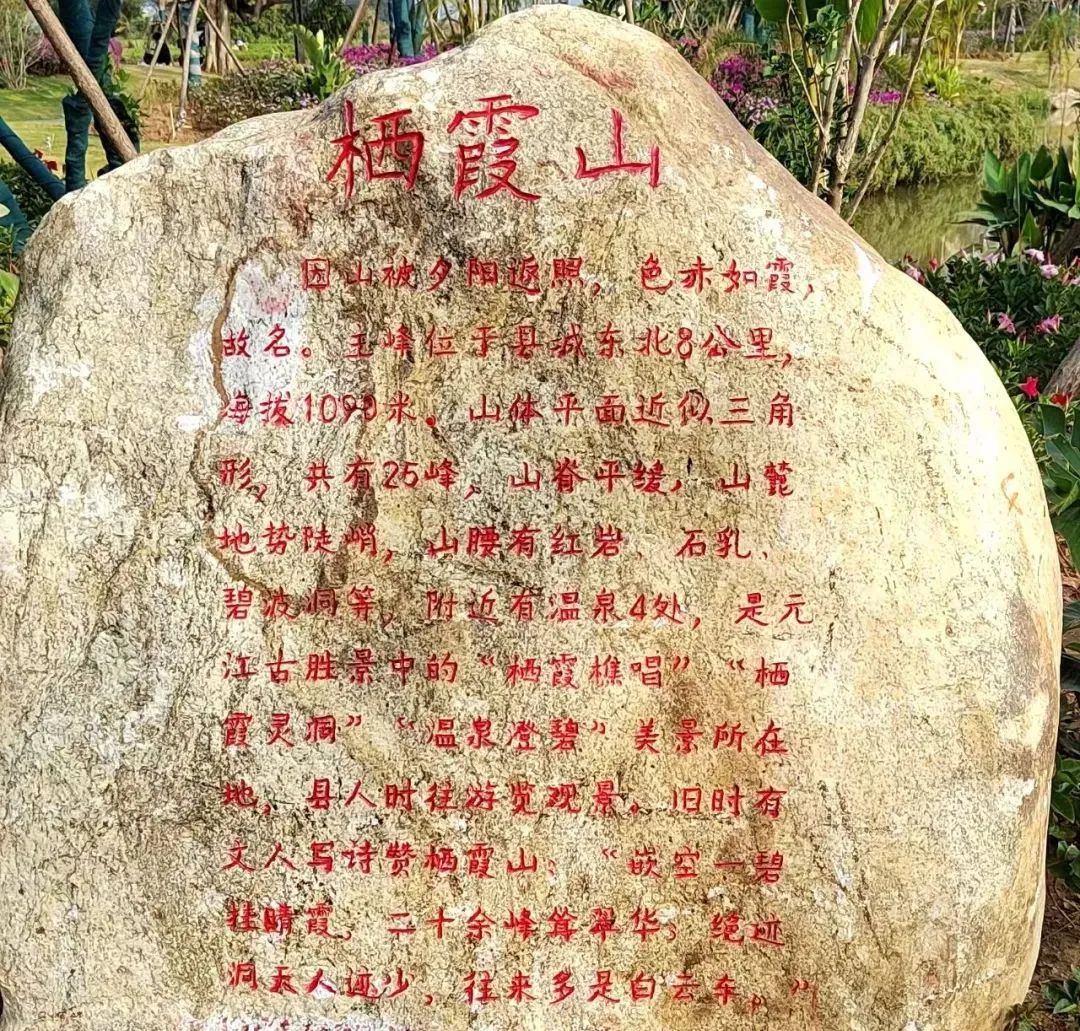 栖霞山
因山被夕阳返照，色赤如霞，
故名。主峰位于县城东北8公里，
海拔1090米。山体平面近似三角
形，共有25峰，山脊平缓，山麓
地势陡峭，山腰有红岩、石乳、
碧波洞等，附近有温泉4处，是元
江古胜景中的“栖霞樵唱”“栖
霞灵洞”“温泉澄碧”美景所在
地，县人时往游览观景。旧时有
文人写诗赞栖霞山：“嵌空一碧
挂晴霞，二十余峰耸翠华；绝迹
洞天人迹少，往来多是白云车。”